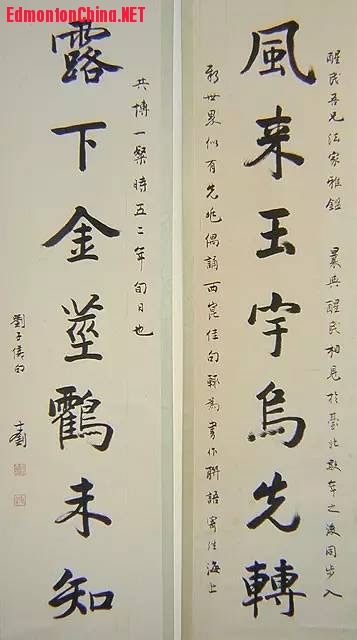 EdmontonChina.NET
醒民吾兄法家雅鑑 曩與醒民相見於臺北數年之後同步入
風来玉宇烏先轉
新世界似有先兆偶誦西崑佳句輒為書作聯語寄往海上
共博一粲時五二年旬日也
露下金莖鸖未知
劉子侯